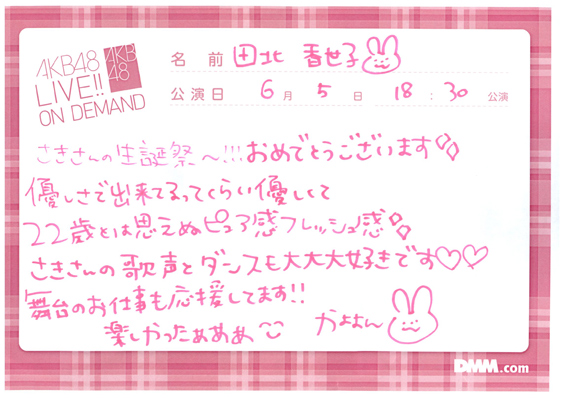 AKB48
LIVE!!
ON DEMAND
AKB
48
名前 田北 香世子
公演日 6月 5日 18:30 公演
さきさんの生誕祭〜!!! おめでとうございます
優しさで出来てるってくらい優しくて
22歳とは思えぬピュア感フレッシュ感
さきさんの歌声とダンスも大大大好きです♡♡
舞台のお仕事も応援してます!!
楽しかったぁぁぁ
かよよん
DMM.com